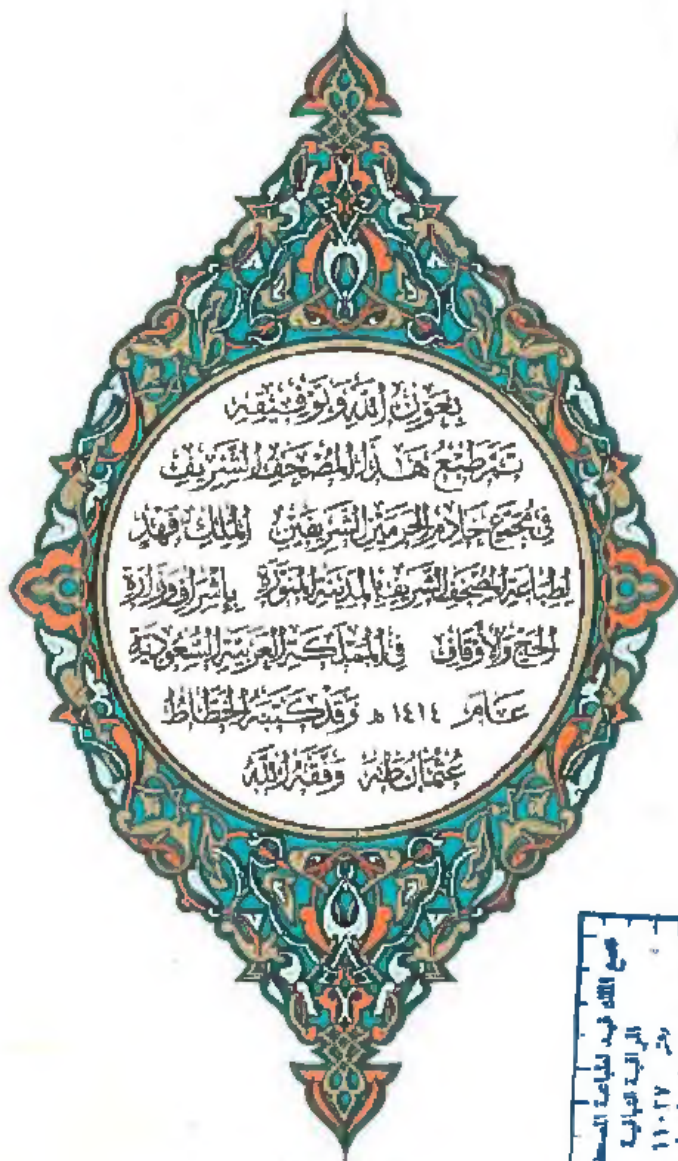 بِعَوْنِ اللَّهِ وَتَوْفِيقِهِ
تَمَّ طَبْعُ هَذَا الْمُصْحَفِ الشَّرِيفِ
فِي مُجَمَّعِ خَادِمِ الْحَرَمَيْنِ الشَّرِيفَيْنِ الْمَلِكِ فَهْد
لِطِبَاعَةِ الْمُصْحَفِ الشَّرِيفِ بِالْمَدِينَةِ الْمُنَوَّرَةِ بِإِشْرَافِ وَزَارَةِ
الْحَجِّ وَالْأَوْقَافِ فِي الْمَمْلَكَةِ الْعَرَبِيَّةِ السُّعُودِيَّةِ
عَامَ ١٤١٤ هـ وَقَدْ كَتَبَهُ الْخَطَّاطُ
عُثْمَان طٰهٰ وَفَّقَهُ اللَّهُ
مجمع الملك فهد لطباعة المصحف
المراقبة النهائية
١١٠٢٧